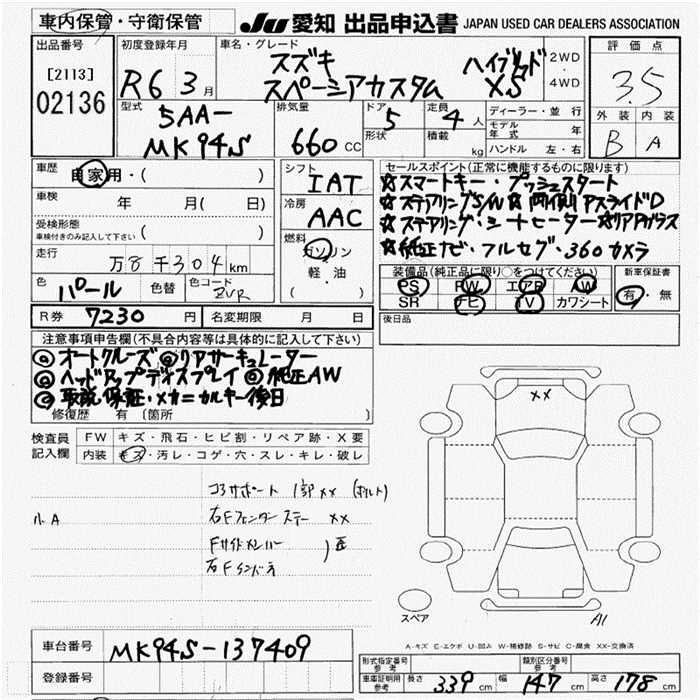 車内保管・守衛保管
JU 愛知 出品申込書 JAPAN USED CAR DEALERS ASSOCIATION
出品番号
[2113]
02136
初度登録年月
R6 3月
車名・グレード
スズキ ハイブリッド
スペーシアカスタム XS
2WD
・
4WD
評価点
3.5
外装 内装
B A
型式
5AA-
MK94S
排気量
660 CC
ドア 5
形状
定員 4 人
積載 kg
ディーラー・並行
モデル年式 年
ハンドル 左・右
車歴
自家用・( )
車検
年 月( 日)
受検形態
車検付きのみ記入して下さい ( )
走行
万8千304km
色 パール 色替 色コード ZVR
シフト
IAT
冷房
AAC
燃料
ガソリン
軽・油
( )
セールスポイント(正常に機能するものに限ります)
☆スマートキー・プッシュスタート
☆ステアリングS/W☆両側PスライドD
☆ステアリング・シートヒーター☆リアPガラス
☆純正ナビ・フルセグ・360カメラ
装備品(純正品に限り○をつけてください)
PS PW エアB AW
SR ナビ TV カワシート
新車保証書
有・無
R券 7230 円 名変期限 月 日
後日品
注意事項申告欄(不具合内容等は具体的に記入して下さい)
◎オートクルーズ◎リアサーキュレーター
◎ヘッドアップディスプレイ◎純正AW
◎取説保証・メカニカルキー後日
修復歴 有〔箇所 〕
検査員記入欄
FW キズ・飛石・ヒビ割・リペア跡・X要
内装 キズ・汚レ・コゲ・穴・スレ・キレ・破レ
コアサポート 1部XX (ボルト)
小A 右Fフェンダーステー XX
Fサイドメンバー
右Fインバーネ
XX
A1
スペア
A-キズ E-エクボ U-凹み W-補修跡 S-サビ C-腐食 XX-交換済
車台番号 MK94S-137409
登録番号
形式指定番号参考 類別区分番号参考
車庫証明用参考 長さ 339 cm 幅 147 cm 高さ 178 cm